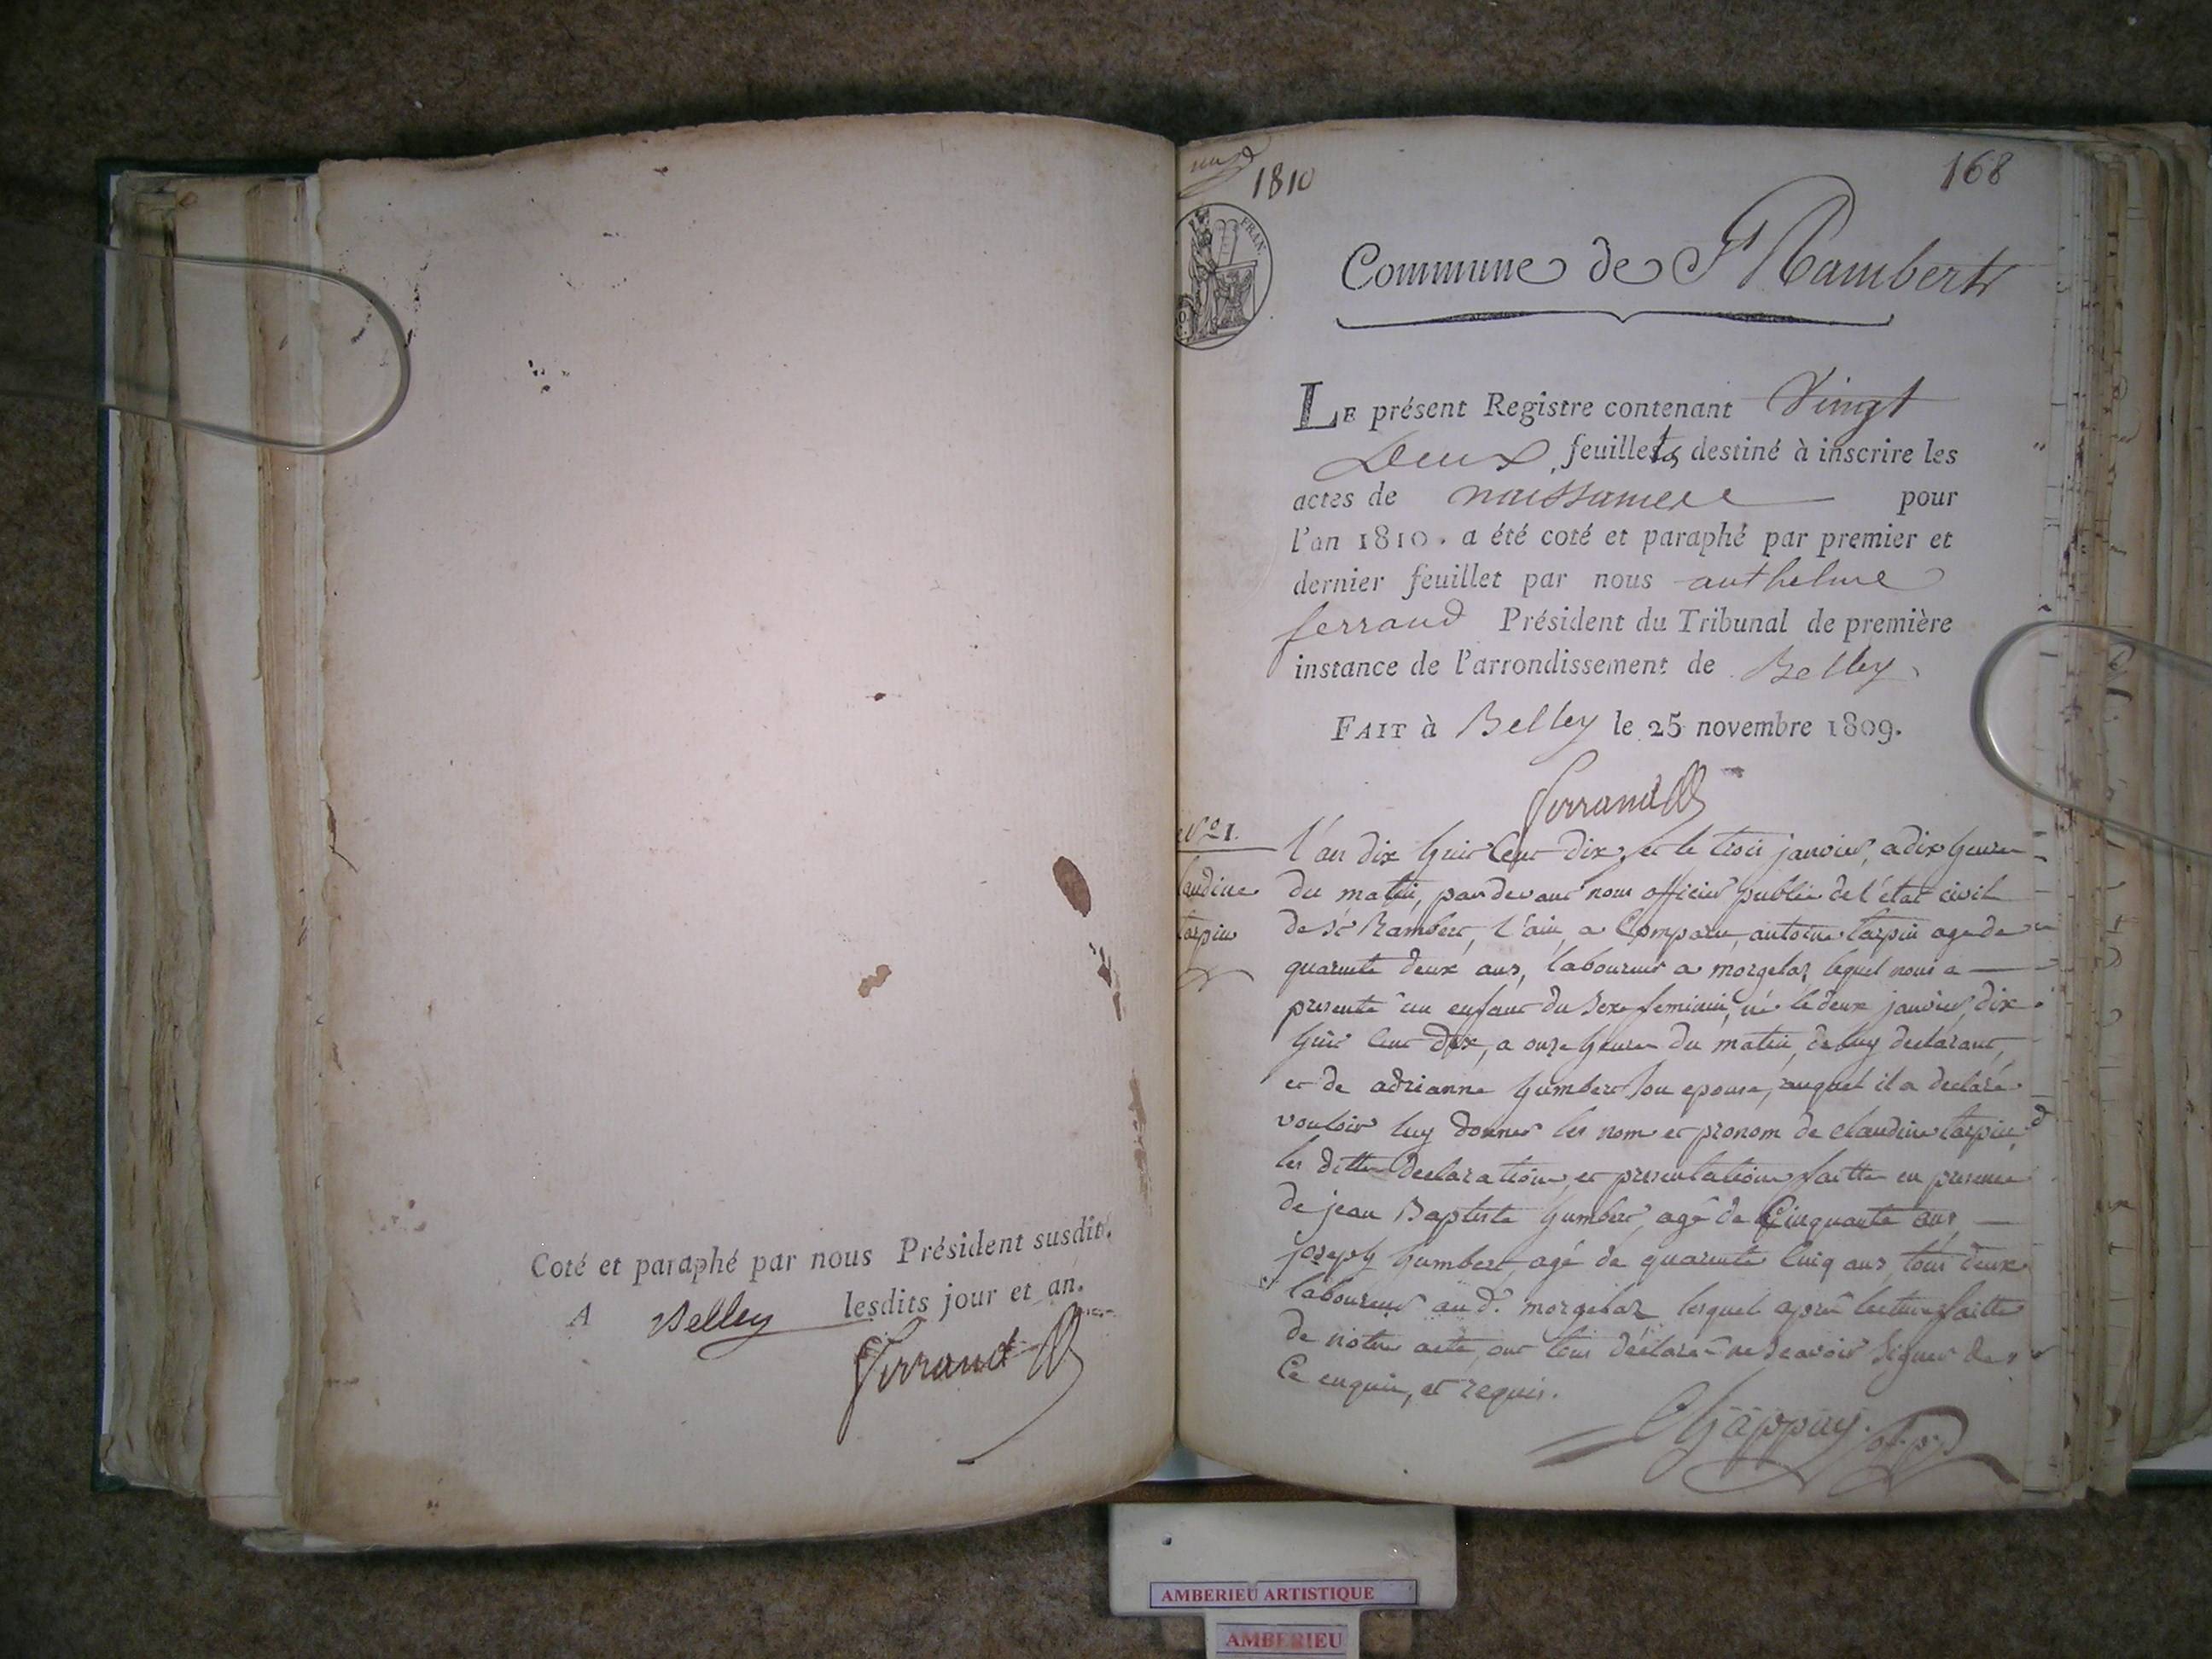 Coté et paraphé par nous Président susdit,
A Belley lesdits jour et an.
Ferrand
1810
168
FRAN
Commune de St Rambert
LE présent Registre contenant Vingt
Deux feuillets destiné à inscrire les
actes de naissance pour
l'an 1810. a été coté et paraphé par premier et
dernier feuillet par nous anthelme
ferrand Président du Tribunal de première
instance de l'arrondissement de Belley
FAIT à Belley le 25 novembre 1809.
Ferrand
N.º 1.
laudine
tarpin
l'an dix huit Cent dix, et le trois janvier, a dix heures
du matin, pardevant nous officier public de l'état civil
de St Rambert, l'ain, a Comparu, antoine tarpin age de
quarente deux ans, laboureur a morgelaz, lequel nous a
presenté un enfant du sexe feminin, né le deux janvier dix
huit cent dix, a onze heures du matin, de luy declarant,
et de adrianne humbert son epouse, auquel il a declaré
vouloir luy donner les nom et pronom de claudine tarpin
les dittes declaration et presentation faitte en presence
de jean Baptiste humbert, agé de Cinquante ans
joseph humbert, agé de quarente cinq ans, tous deux
laboureur au d. morgelaz lesquel après lecture faitte
de notre acte, ont tous déclaré ne scavoir signer de
Ce enquis, et requis.
Chappuy
AMBERIEU ARTISTIQUE
AMBERIEU